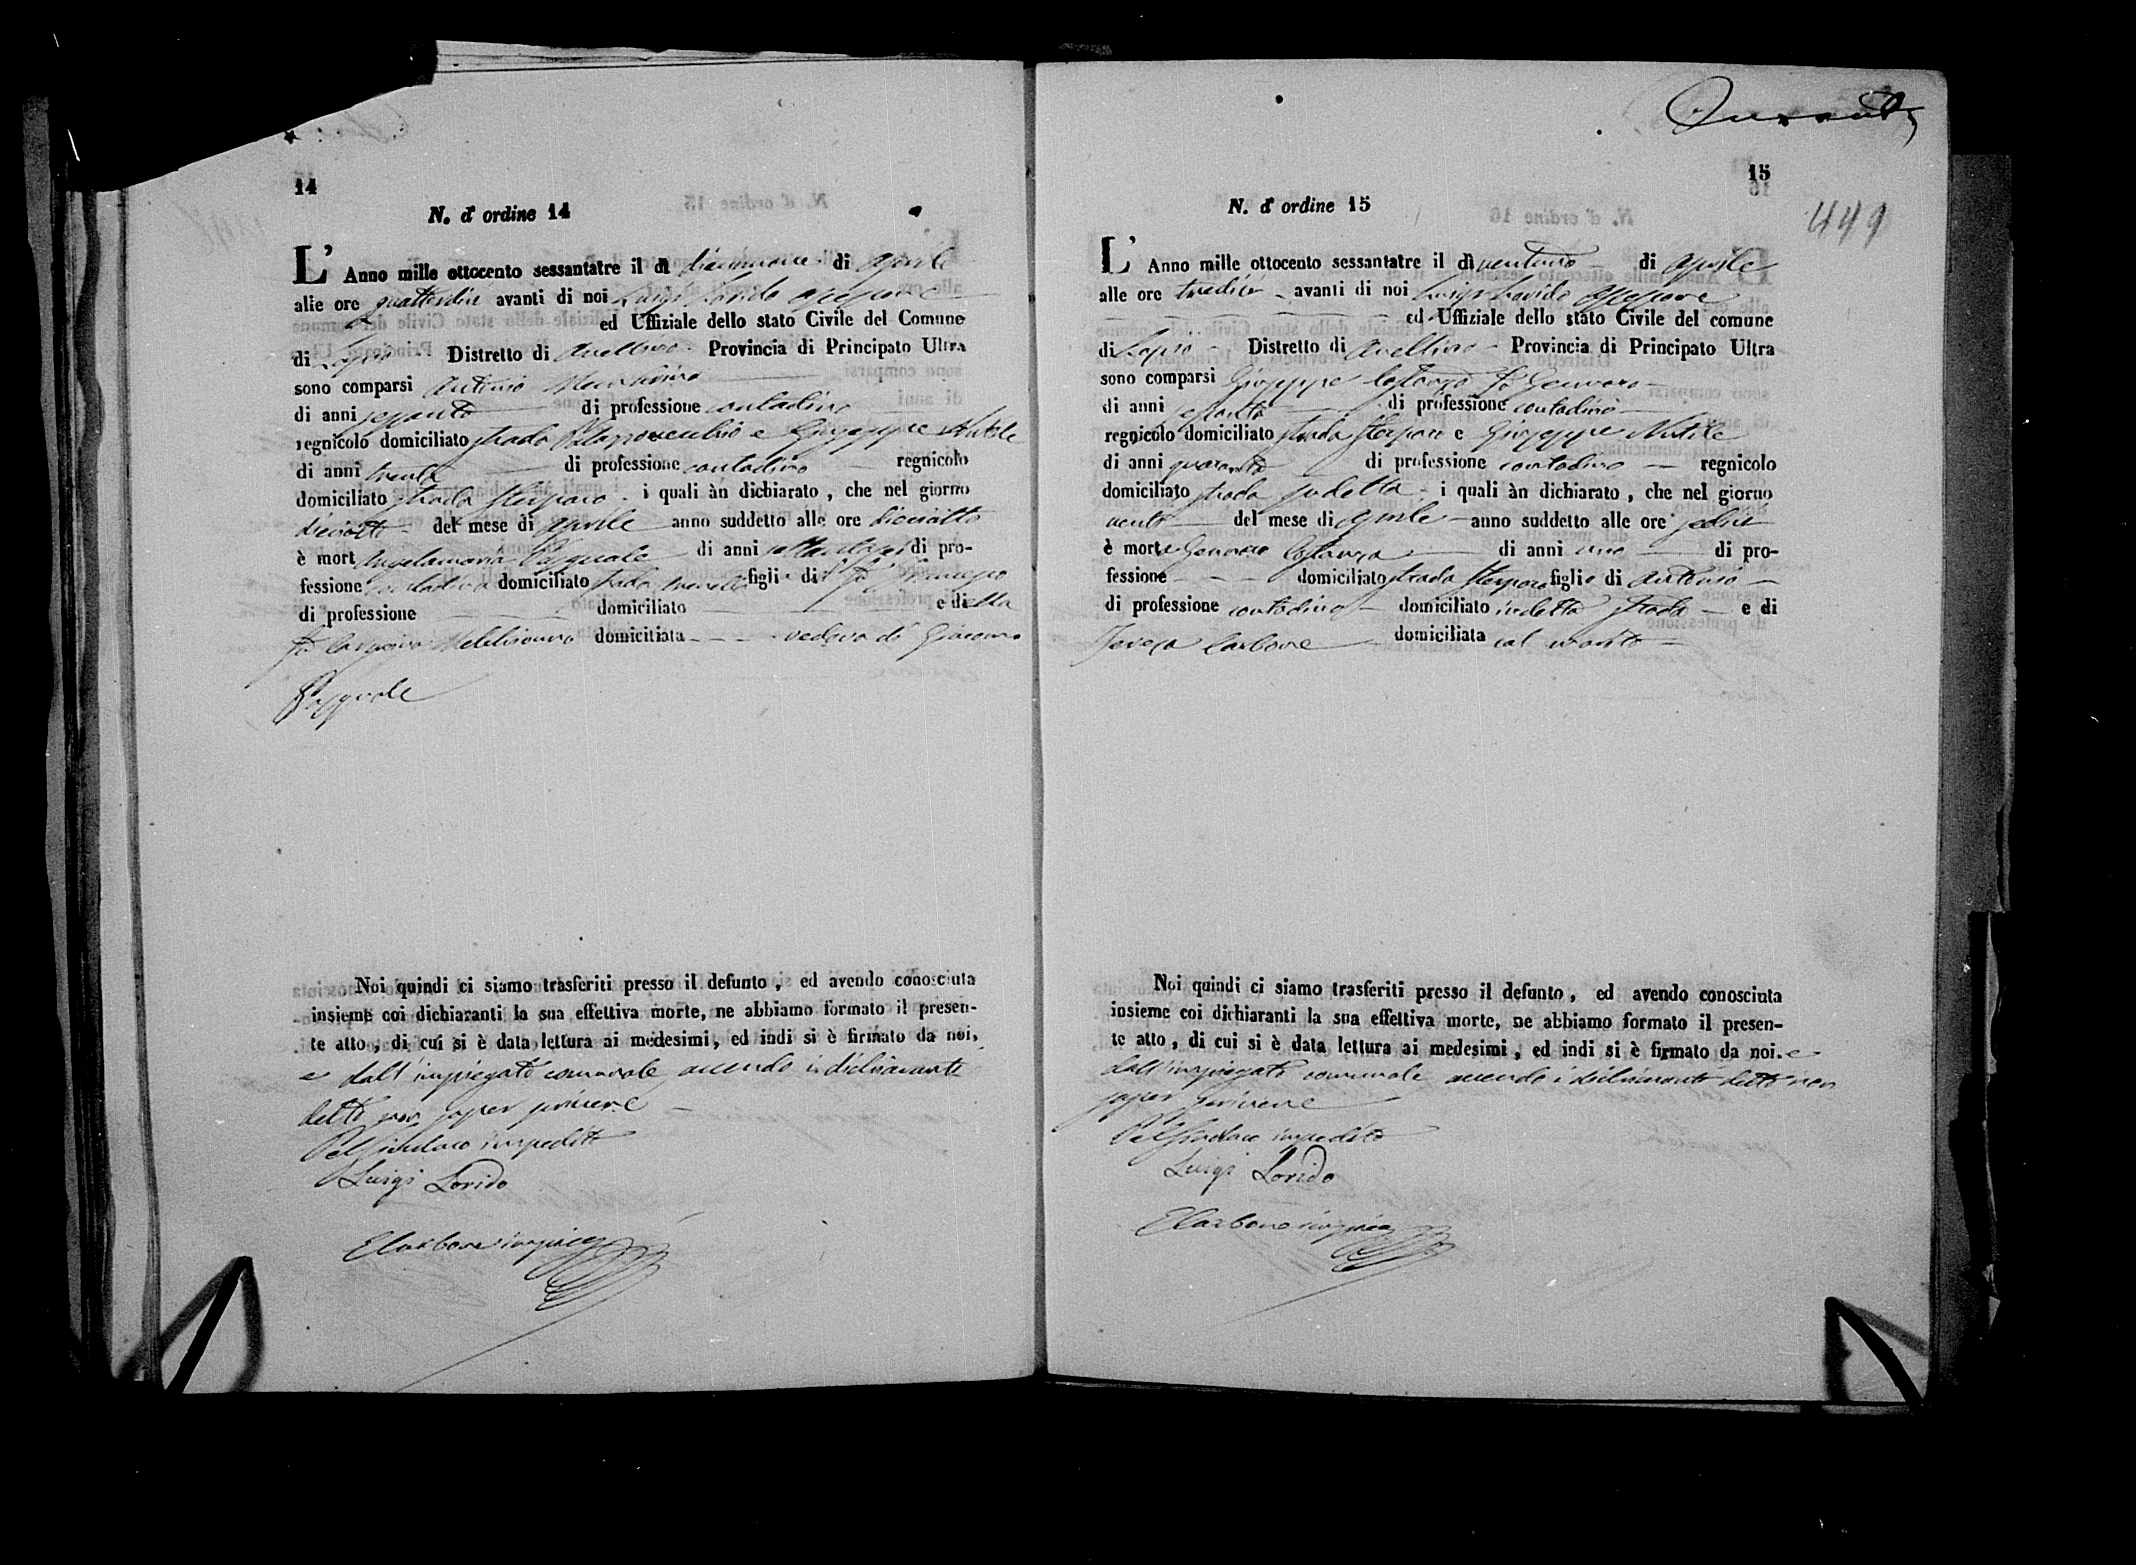 14
N. d' ordine 14
L' Anno mille ottocento sessantatre il di diciannove di Aprile
alle ore quattordici avanti di noi Luigi Lorido Assessore
ed Uffiziale dello stato Civile del Comune
di Lapio Distretto di Avellino Provincia di Principato Ultra
sono comparsi Antonio
di anni sessanta di professione contadino
regnicolo domiciliato strada e Giuseppe Nutile
di anni trenta di professione contadino regnicolo
domiciliato strada i quali àn dichiarato, che nel giorno
diciotto del mese di Aprile anno suddetto alle ore diciotto
è mort Angelamaria Pasquale di anni di pro-
fessione contadina domiciliato strada figlia di fu
di professione domiciliato e di della
fu domiciliata vedova di Giacomo
Pasquale
Noi quindi ci siamo trasferiti presso il defunto, ed avendo conosciuta
insieme coi dichiaranti la sua effettiva morte, ne abbiamo formato il presen-
te atto, di cui si è data lettura ai medesimi, ed indi si è firmato da noi,
e dall'impiegato comunale avendo i dichiaranti
detto non saper scrivere
Pel Sindaco impedito
Luigi Lorido
E Carbone impieg
15
449
N. d' ordine 15
L' Anno mille ottocento sessantatre il dì ventuno di Aprile
alle ore tredici avanti di noi Luigi Lorido Assessore
ed Uffiziale dello stato Civile del comune
di Lapio Distretto di Avellino Provincia di Principato Ultra
sono comparsi Giuseppe Costanza fu Gennaro
di anni di professione contadino
regnicolo domiciliato strada e Giuseppe Nutile
di anni quaranta di professione contadino regnicolo
domiciliato strada sudetta i quali àn dichiarato, che nel giorno
venti del mese di Aprile anno suddetto alle ore sedici
è morto Gennaro Costanza di anni uno di pro-
fessione domiciliato strada figlio di Antonio
di professione contadino domiciliato in detta strada e di
Teresa Carbone domiciliata col marito
Noi quindi ci siamo trasferiti presso il defunto, ed avendo conosciuta
insieme coi dichiaranti la sua effettiva morte, ne abbiamo formato il presen-
te atto, di cui si è data lettura ai medesimi, ed indi si è firmato da noi. e
dall'impiegato comunale avendo i dichiaranti detto non
saper scrivere
Pel Sindaco impedito
Luigi Lorido
E Carbone impieg